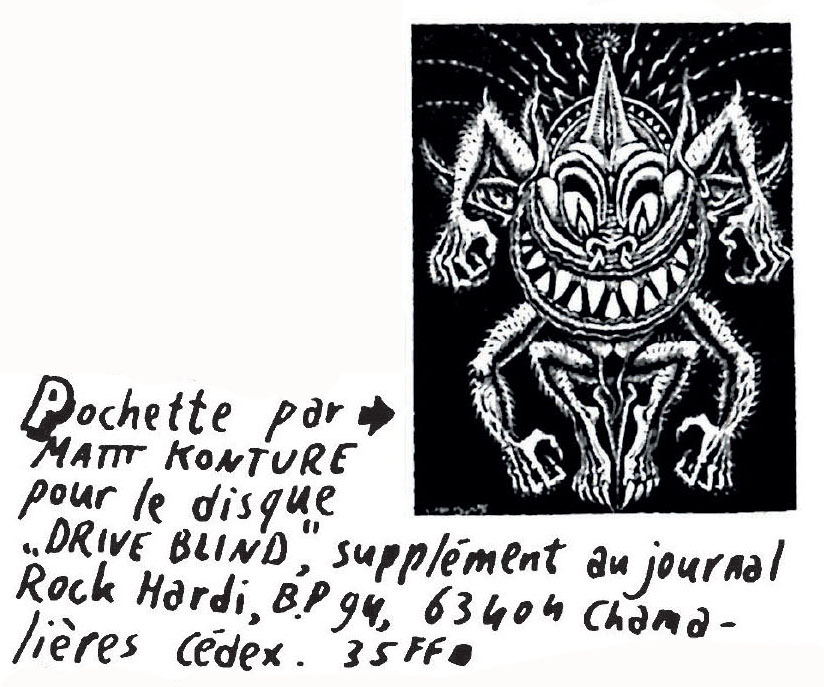 Pochette par ➔
MATTT KONTURE
pour le disque
„DRIVE BLIND", supplément au journal
Rock Hardi, B.P 94, 63404 Chama-
lières Cédex. 35 FF.